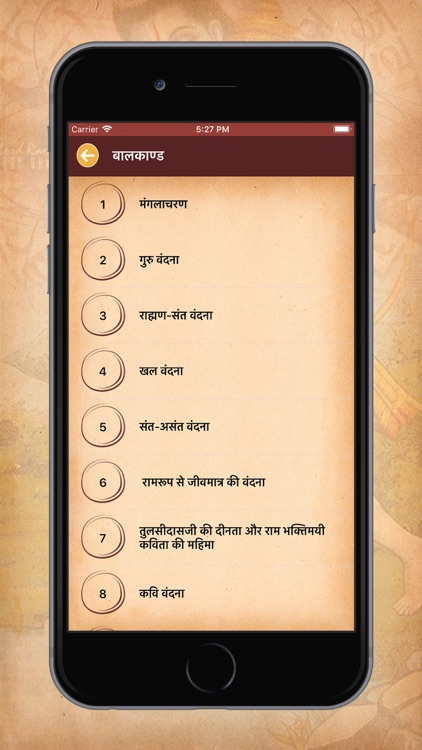 Carrier 5:27 PM
बालकाण्ड
1 मंगलाचरण
2 गुरु वंदना
3 राह्मण-संत वंदना
4 खल वंदना
5 संत-असंत वंदना
6 रामरूप से जीवमात्र की वंदना
7 तुलसीदासजी की दीनता और राम भक्तिमयी
कविता की महिमा
8 कवि वंदना